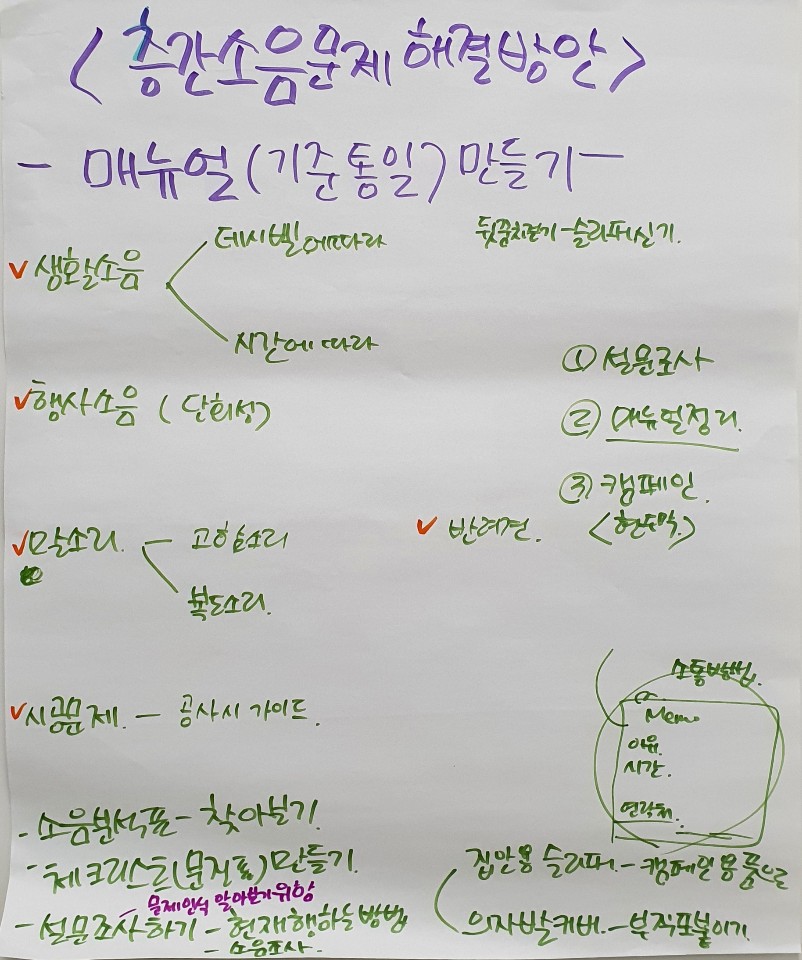 <층간소음문제 해결방안>
- 매뉴얼(기준통일) 만들기 -
데시벨에따라
뒷꿈치걷기-슬리퍼신기.
✓생활소음
시간에 따라
① 설문조사
✓행사소음 (단회성)
② 매뉴얼정리.
③ 캠페인.
✓ 반려견.
<현도막.>
✓말소리. - 고함소리
복도소리.
소통방법.
✓시공문제. - 공사시 가이드.
Memo
이유.
시간.
연락처.
- 소음분석표 - 찾아보기.
- 체크리스트(문진표) 만들기.
집안용 슬리퍼. - 캠페인용품으로
- 문제인식 알아보기위함
- 설문조사하기 - 현재행하는방법
의자발커버. - 부직포붙이기.
- 소음조사.